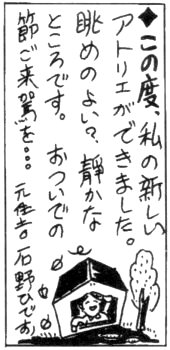 ◆この度、私の新しい
アトリエができました。
眺めのよい？静かな
ところです。おついでの
節ご来駕を…
元住吉 石野ひでお